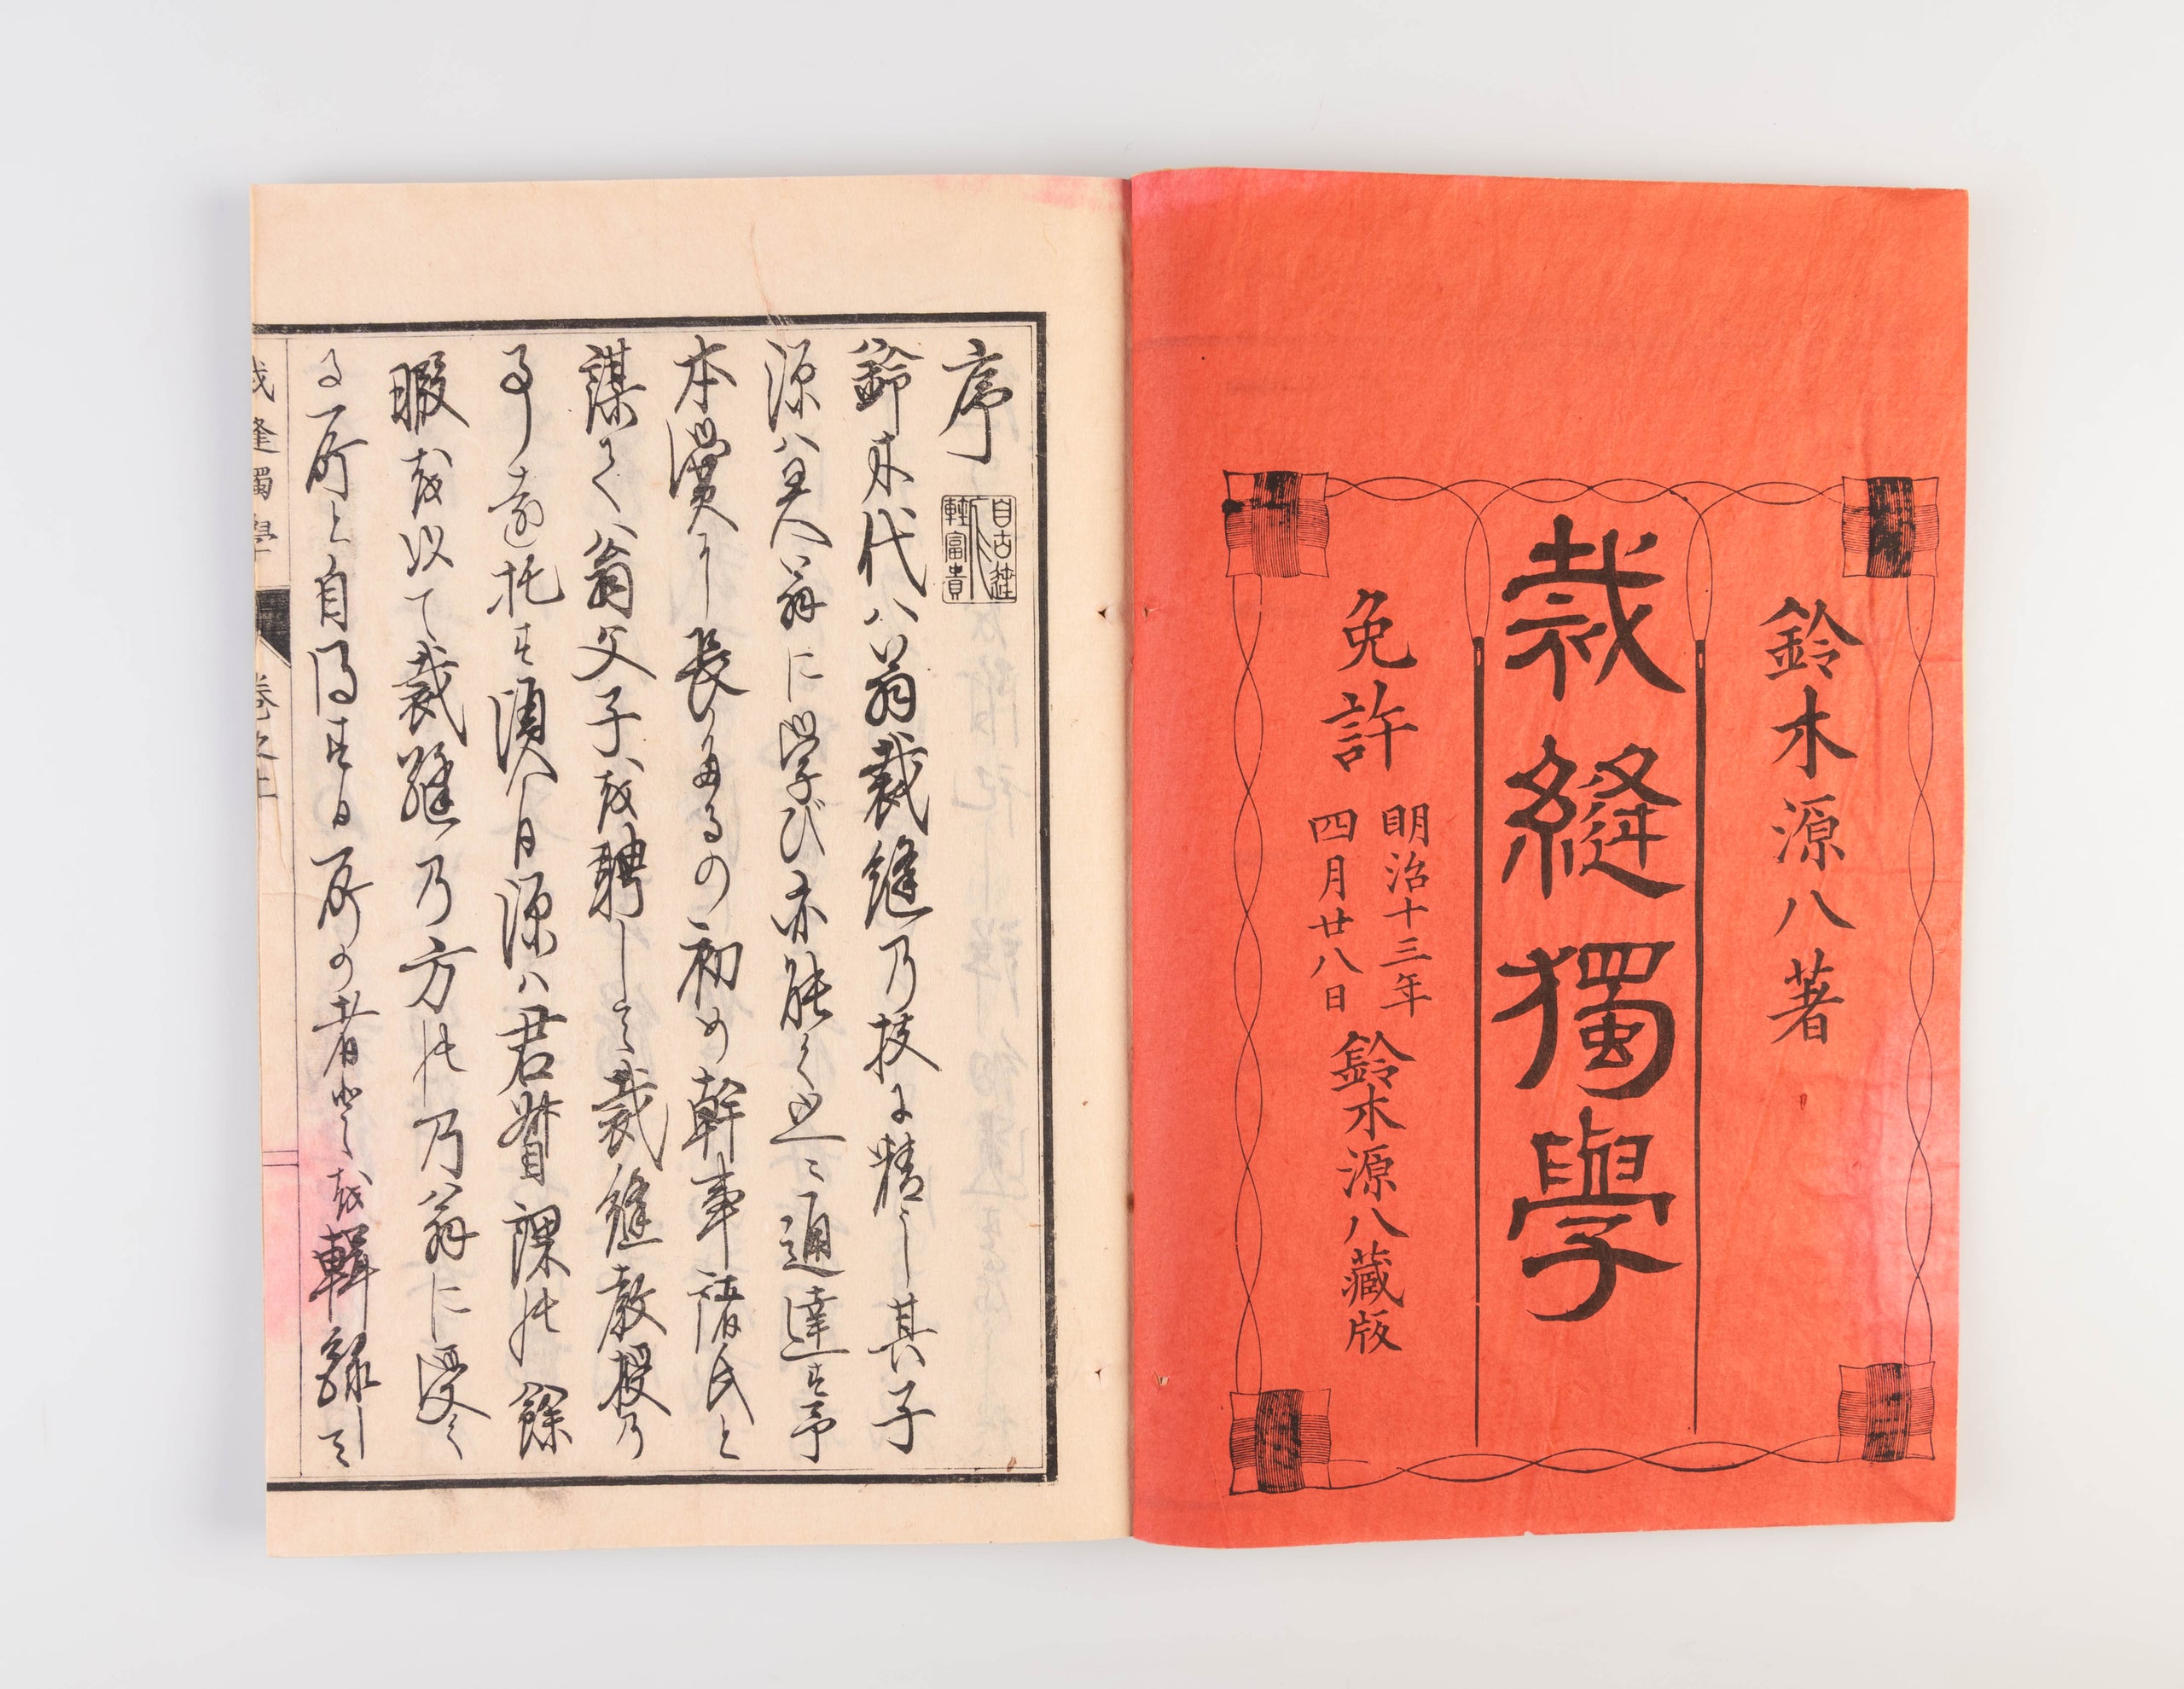 鈴木源八著
裁縫獨學
免許
明治十三年
四月廿八日
鈴木源八藏版
序
自古達人輕富貴
鈴木代八翁裁縫乃技に精し其子
源八君翁に学び亦能く通達す予
本黌に長たるの初め幹事諸氏と
謀て翁父子を聘して裁縫教授乃
事を托す頃日源八君督課の餘
暇を以て裁縫乃方の乃翁に受く
る所と自得する所の者とを輯録して
裁縫獨學
卷之上